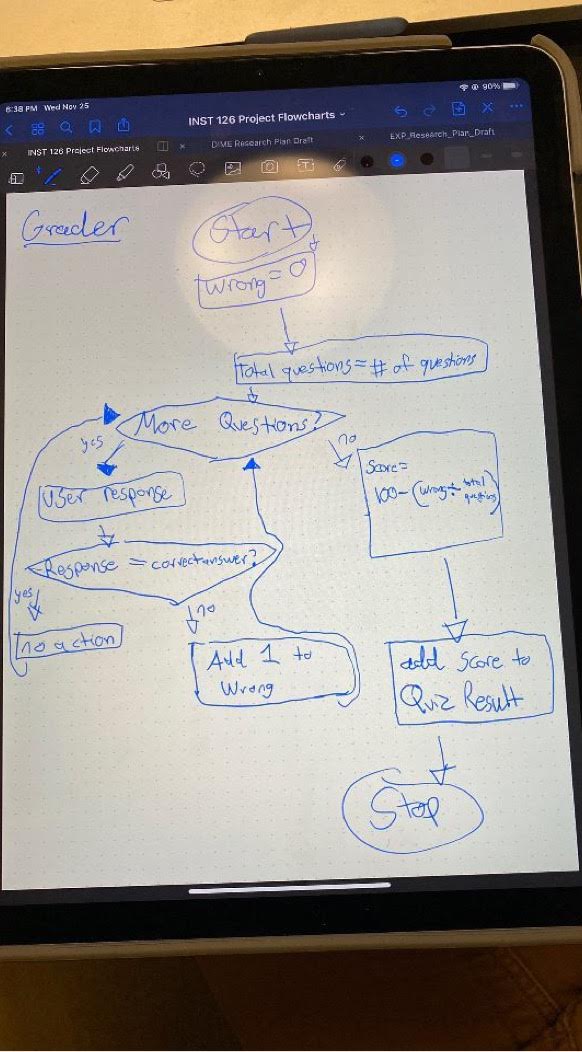 6:38 PM Wed Nov 25
90%
INST 126 Project Flowcharts
INST 126 Project Flowcharts
DIME Research Plan Draft
EXP_Research_Plan_Draft
Grader
Start
Wrong = 0
total questions = # of questions
More Questions?
yes
no
User response
Score =
100 - (wrong ÷ total
questions)
Response = correct answer?
yes
no
no action
Add 1 to
Wrong
add score to
Quiz Result
Stop